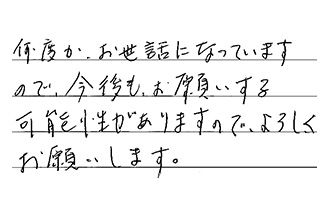 何度か、お世話になっています
ので、今後も、お願いする
可能性がありますので、よろしく
お願いします。